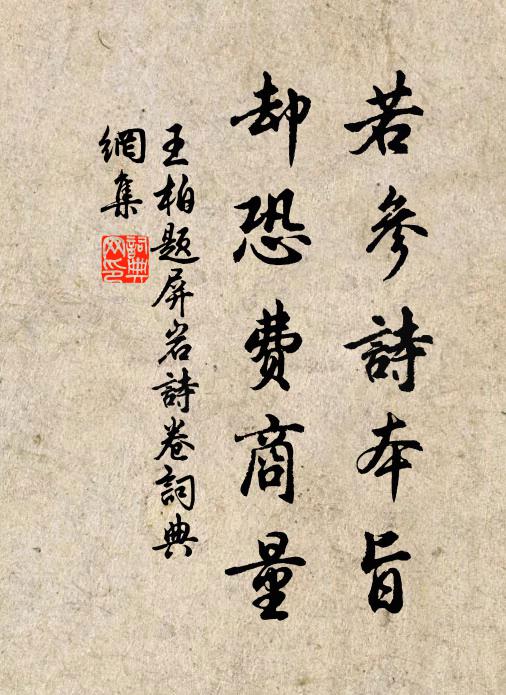 若參詩本旨
却恐費商量
王柏題屏岩詩卷詞典
網集
詞典
网印